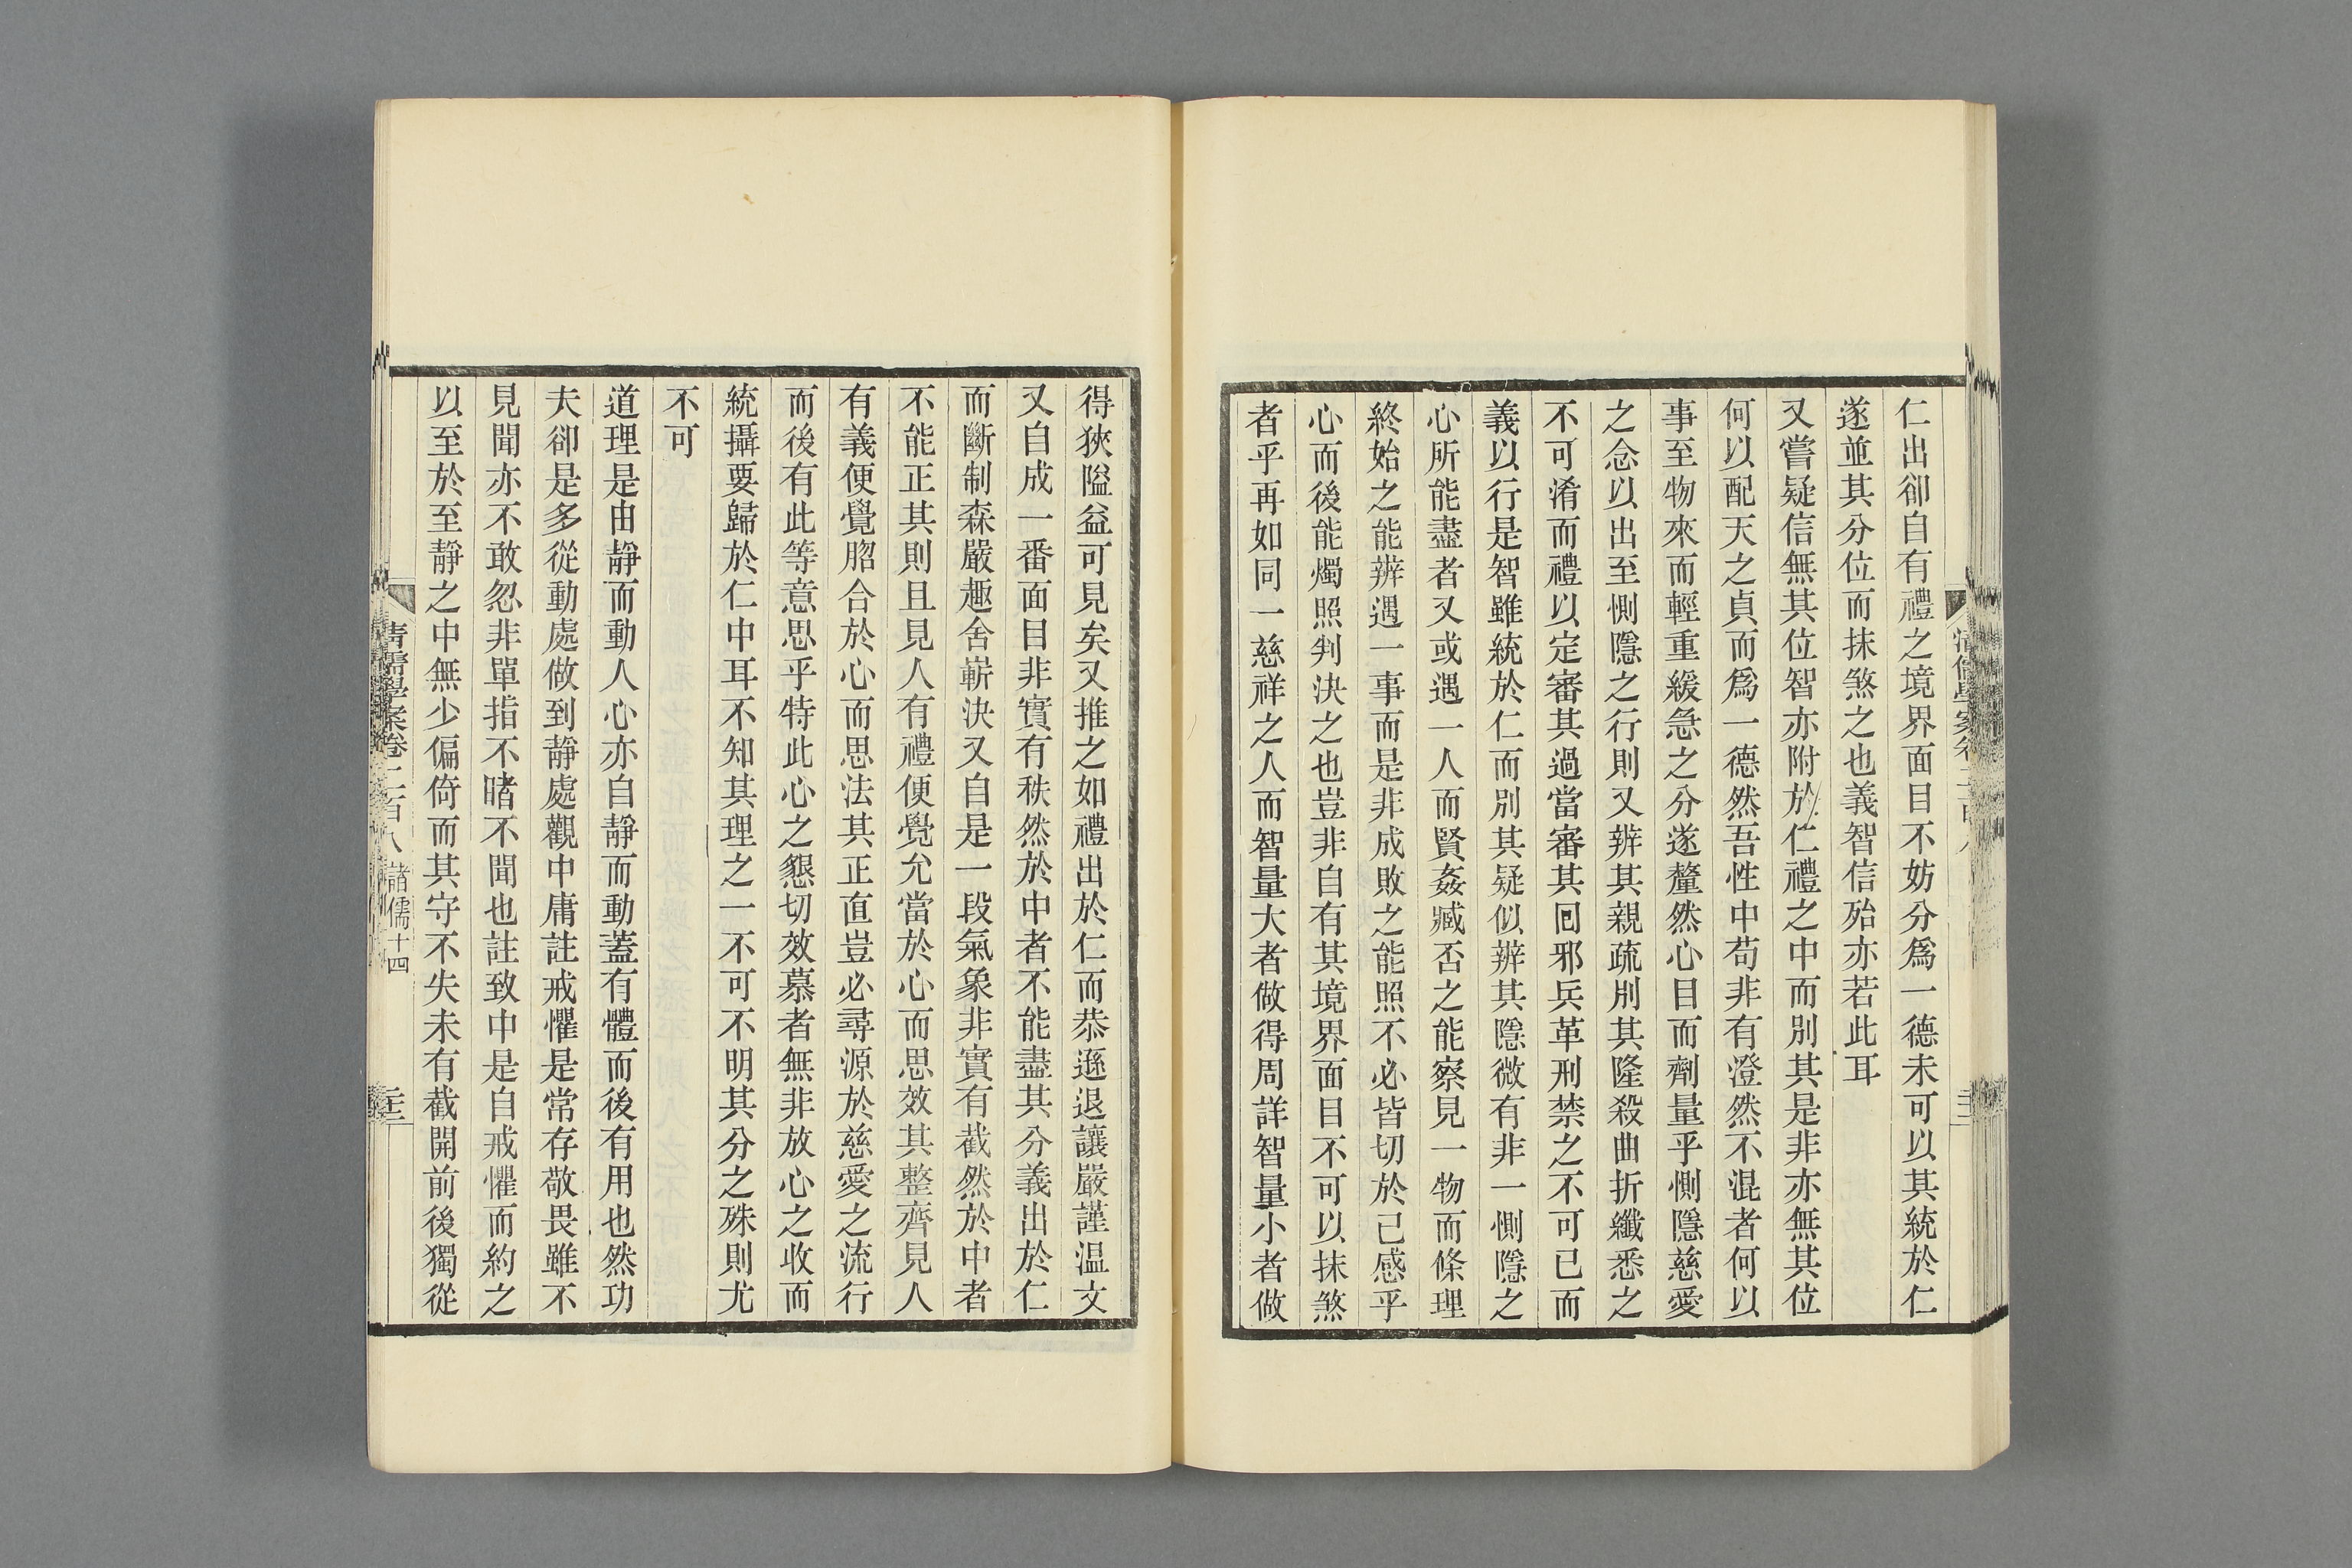 仁出卻自有禮之境界面目不妨分爲一德未可以其統於仁
遂並其分位而抹煞之也義智信殆亦若此耳
又嘗疑信無其位智亦附於仁禮之中而別其是非亦無其位
何以配天之貞而爲一德然吾性中苟非有澄然不混者何以
事至物來而輕重緩急之分遂釐然心目而劑量乎惻隱慈愛
之念以出至惻隱之行則又辨其親疏別其隆殺曲折纖悉之
不可淆而禮以定審其過當審其回邪兵革刑禁之不可已而
義以行是智雖統於仁而別其疑似辨其隱微有非一惻隱之
心所能盡者又或遇一人而賢姦臧否之能察見一物而條理
終始之能辨遇一事而是非成敗之能照不必皆切於己感乎
心而後能燭照判決之也豈非自有其境界面目不可以抹煞
者乎再如同一慈祥之人而智量大者做得周詳智量小者做
得狹隘益可見矣又推之如禮出於仁而恭遜退讓嚴謹温文
又自成一番面目非實有秩然於中者不能盡其分義出於仁
而斷制森嚴趣舍嶄決又自是一段氣象非實有截然於中者
不能正其則且見人有禮便覺允當於心而思效其整齊見人
有義便覺脗合於心而思法其正直豈必尋源於慈愛之流行
而後有此等意思乎特此心之懇切效慕者無非放心之收而
統攝要歸於仁中耳不知其理之一不可不明其分之殊則尤
不可
道理是由靜而動人心亦自靜而動蓋有體而後有用也然功
夫卻是多從動處做到靜處觀中庸註戒懼是常存敬畏雖不
見聞亦不敢忽非單指不睹不聞也註致中是自戒懼而約之
以至於至靜之中無少偏倚而其守不失未有截開前後獨從
清儒學案卷二百八 諸儒十四